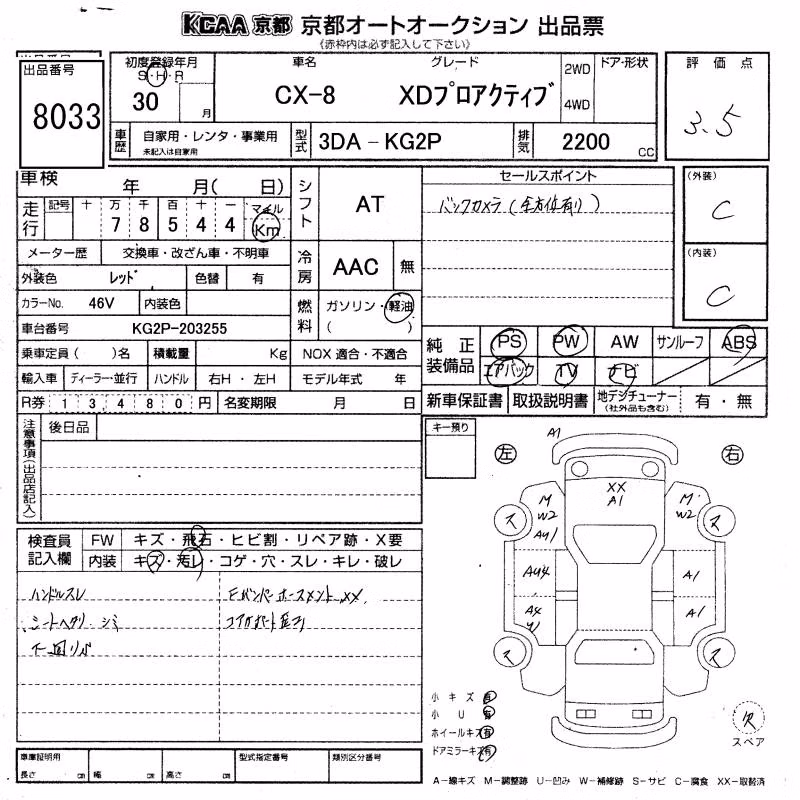 KCAA 京都 京都オートオークション 出品票
《赤枠内は必ず記入して下さい》
出品番号
8033
初度登録年月
S・H・R
30 月
車名 グレード
CX-8 XDプロアクティブ
2WD
4WD
ドア・形状
評価点
3.5
車歴 自家用・レンタ・事業用
未記入は自家用
型式 3DA-KG2P
排気 2200 CC
車検 年 月( 日)
走行 記号 十 万 千 百 十 一 マイル
7 8 5 4 4 Km
シフト AT
セールスポイント
バックカメラ(全方位有り)
(外装)
C
(内装)
C
メーター歴 交換車・改ざん車・不明車
冷房 AAC 無
外装色 レッド 色替 有
カラーNo. 46V 内装色
燃料 ガソリン・軽油
( )
車台番号 KG2P-203255
乗車定員( )名 積載量 Kg NOX 適合・不適合
輸入車 ディーラー・並行 ハンドル 右H・左H モデル年式 年
R券 13480円 名変期限 月 日
純正装備品 PS PW AW サンルーフ ABS
エアバック TV ナビ
新車保証書 取扱説明書 地デジチューナー
(社外品も含む) 有・無
注意事項(出品店記入)
後日品
キー預り
左 右
検査員記入欄
FW キズ・飛石・ヒビ割・リペア跡・X要
内装 キズ・汚レ・コゲ・穴・スレ・キレ・破レ
ハンドルスレ
シートヘタリ シミ
下回りサビ
FバンパーホースメントXX
A1
XX
A1
M
W2
AU1
M
W2
AU4
A1
A4
U1
A1
ス ス
ス ス
小キズ 有
小U 有
ホイールキズ 有
ドアミラーキズ 有
欠
スペア
車庫証明用
長さ cm 幅 cm 高さ cm
型式指定番号
類別区分番号
A-線キズ M-調整跡 U-凹み W-補修跡 S-サビ C-腐食 XX-取替済